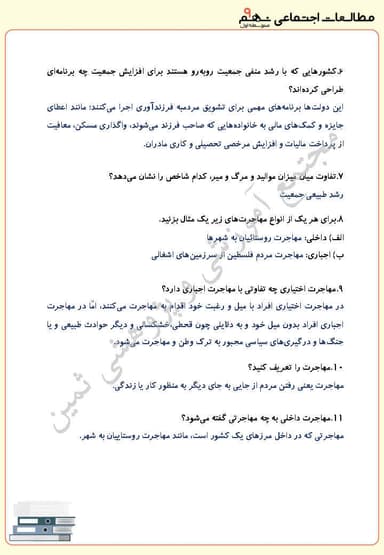 مطالعات اجتماعی نهم
متوسطه اول
۶.کشورهایی که با رشد منفی جمعیت روبه‌رو هستند برای افزایش جمعیت چه برنامه‌ای
طراحی کرده‌اند؟
این دولت‌ها برنامه‌های مهمی برای تشویق مردمبه فرزندآوری اجرا می‌کنند؛ مانند اعطای
جایزه و کمک‌های مالی به خانواده‌هایی که صاحب فرزند می‌شوند، واگذاری مسکن، معافیت
از پرداخت مالیات و افزایش مرخصی تحصیلی و کاری مادران.
۷.تفاوت میان میزان موالید و مرگ و میر، کدام شاخص را نشان می‌دهد؟
رشد طبیعی جمعیت
۸.برای هر یک از انواع مهاجرت‌های زیر یک مثال بزنید.
الف) داخلی: مهاجرت روستائیان به شهرها
ب) اجباری: مهاجرت مردم فلسطین از سرزمین‌های اشغالی
۹.مهاجرت اختیاری چه تفاوتی با مهاجرت اجباری دارد؟
در مهاجرت اختیاری افراد با میل و رغبت خود اقدام به مهاجرت می‌کنند، امّا در مهاجرت
اجباری افراد بدون میل خود و به دلایلی چون قحطی، خشکسالی و دیگر حوادث طبیعی و یا
جنگ‌ها و درگیری‌های سیاسی مجبور به ترک وطن و مهاجرت می‌شود.
۱۰.مهاجرت را تعریف کنید؟
مهاجرت یعنی رفتن مردم از جایی به جای دیگر به منظور کار یا زندگی.
۱۱.مهاجرت داخلی به چه مهاجرتی گفته می‌شود؟
مهاجرتی که در داخل مرزهای یک کشور است، مانند مهاجرت روستاییان به شهر.
مجتمع آموزشی و پژوهشی ثمین